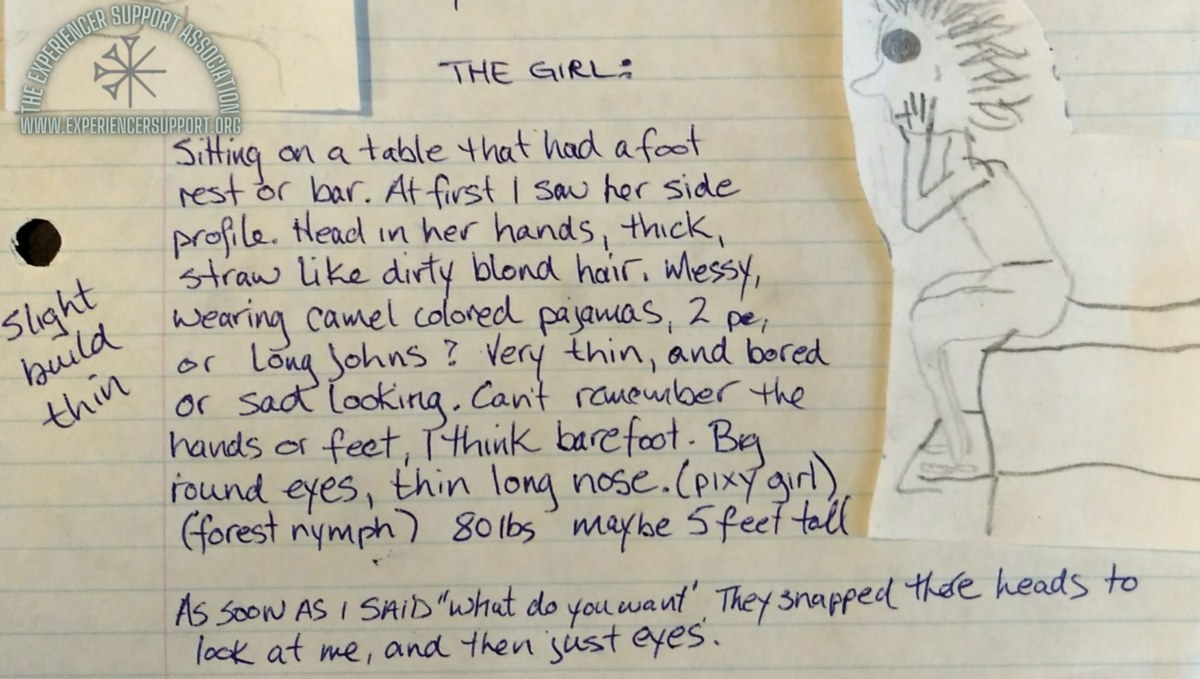 THE EXPERIENCER SUPPORT ASSOCIATION
WWW.EXPERIENCERSUPPORT.ORG
THE GIRL:
Sitting on a table that had a foot
rest or bar. At first I saw her side
profile. Head in her hands, thick,
straw like dirty blond hair. Messy,
wearing camel colored pajamas, 2 pc,
or long Johns? Very thin, and bored
or sad looking. Can't remember the
hands or feet, I think barefoot. Big
round eyes, thin long nose. (pixy girl)
(forest nymph) 80 lbs maybe 5 feet tall
slight
build
thin
As soon As I SAID "what do you want" They snapped there heads to
look at me, and then just eyes.